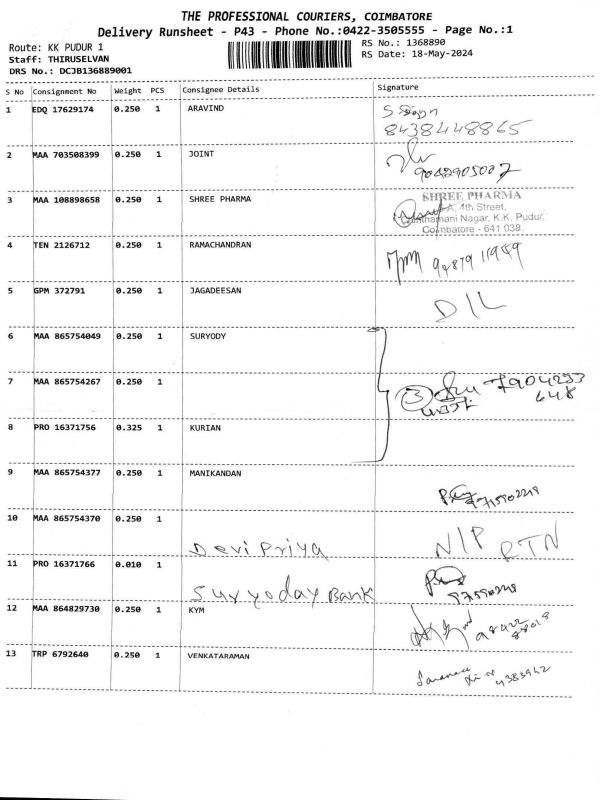 THE PROFESSIONAL COURIERS, COIMBATORE
Delivery Runsheet - P43 - Phone No.:0422-3505555 - Page No.:1
Route: KK PUDUR 1
RS No.: 1368890
Staff: THIRUSELVAN
RS Date: 18-May-2024
DRS No.: DCJB136889001
S No Consignment No Weight PCS Consignee Details Signature
1 EDQ 17629174 0.250 1 ARAVIND
8438448865
2 MAA 703508399 0.250 1 JOINT
9042905007
3 MAA 108898658 0.250 1 SHREE PHARMA
SHREE PHARMA
A, 4th Street,
Nagar, K.K. Pudur,
Coimbatore - 641 038.
4 TEN 2126712 0.250 1 RAMACHANDRAN
5 GPM 372791 0.250 1 JAGADEESAN
D/L
6 MAA 865754049 0.250 1 SURYODY
7 MAA 865754267 0.250 1
3 7904233
648
8 PRO 16371756 0.325 1 KURIAN
9 MAA 865754377 0.250 1 MANIKANDAN
10 MAA 865754370 0.250 1
Devi Priya N/P RTN
11 PRO 16371766 0.010 1
Suryoday Bank
12 MAA 864829730 0.250 1 KYM
13 TRP 6792640 0.250 1 VENKATARAMAN
4383942